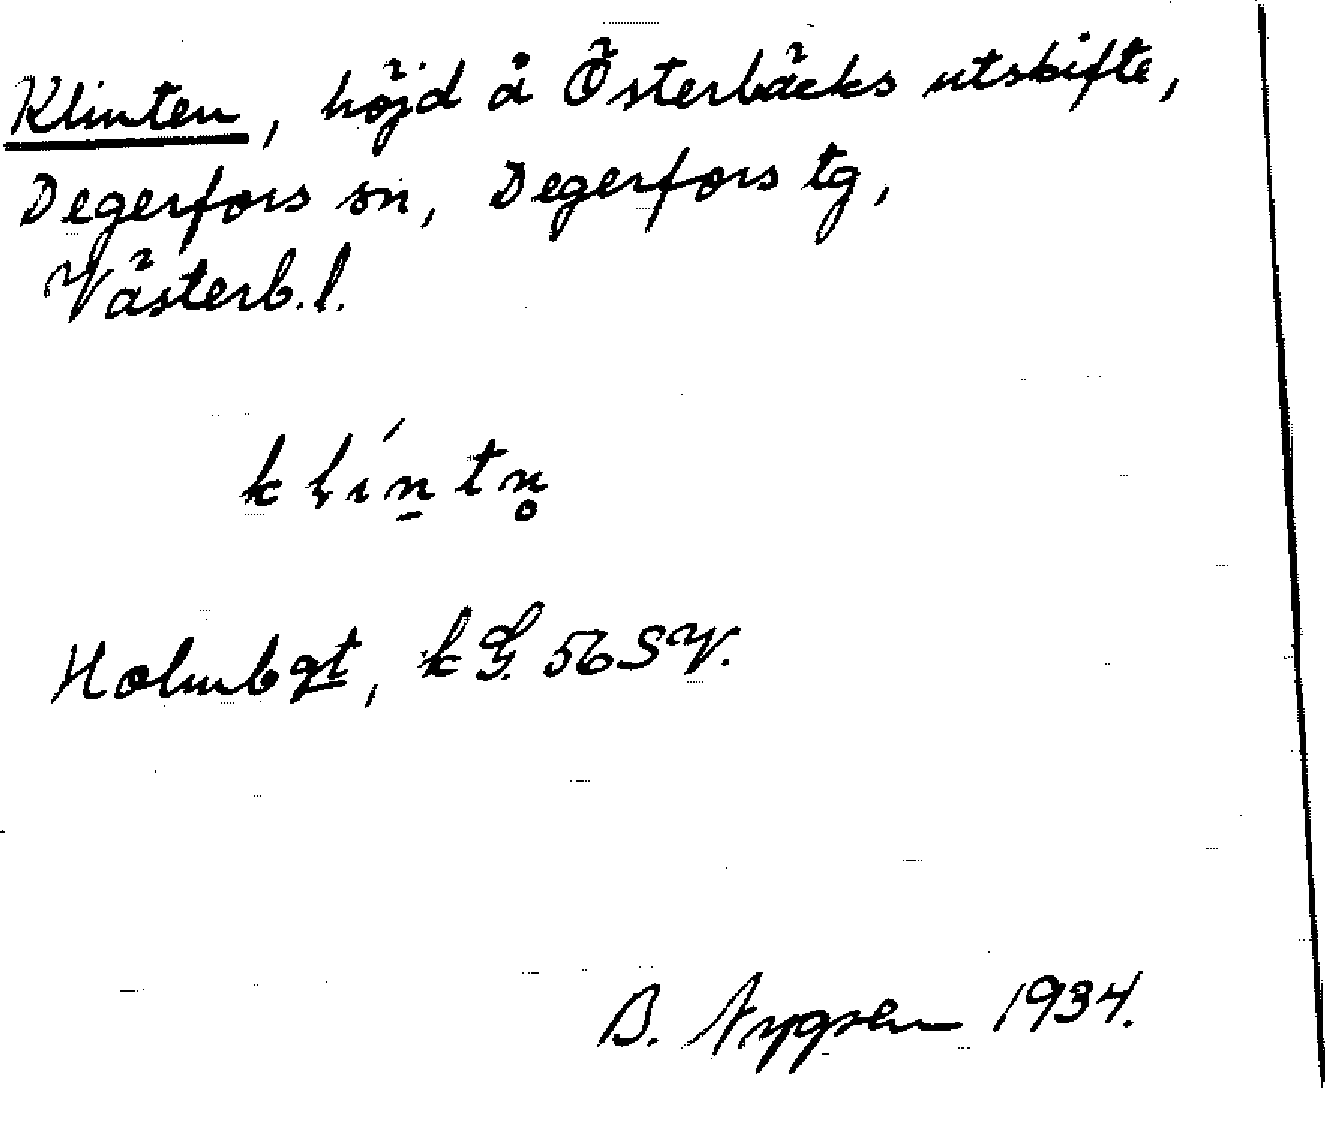 Klinten, höjd å Österbäcks utskifte,
Degerfors sn, Degerfors tg,
Västerb. l.
klín̠tn̥
Holmbgt, kG. 56 SV.
B. Nygren 1934.